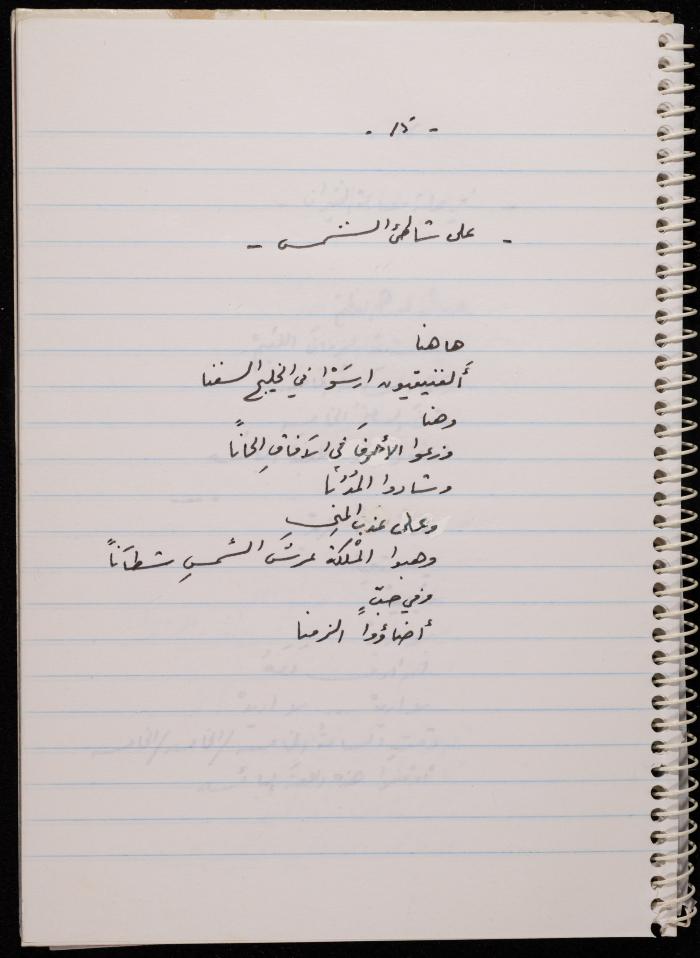 - ١٥ -
- على شاطئ الشمس -
هاهنا
ألفنيقيون ارسَوْا في الخليج السفنا
وهنا
وزعوا الأحرفَ في الآفاقِ الحاناً
وشادوا المُدُنا
وعلى عذبِ المنى
وهبوا المُلكَ عرشَ الشمسِ شطآناً
وفي حبٍّ
أضاؤوا الزمنا